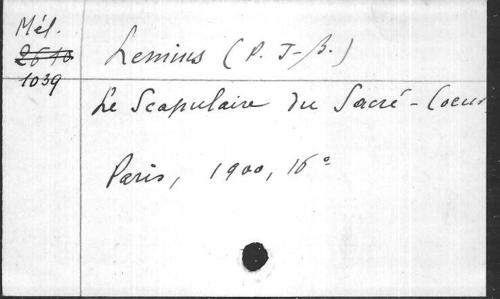 Mél.
2640
1039
Lemius (P. J-B.)
Le Scapulaire du Sacré-Coeur
Paris, 1900, 16°